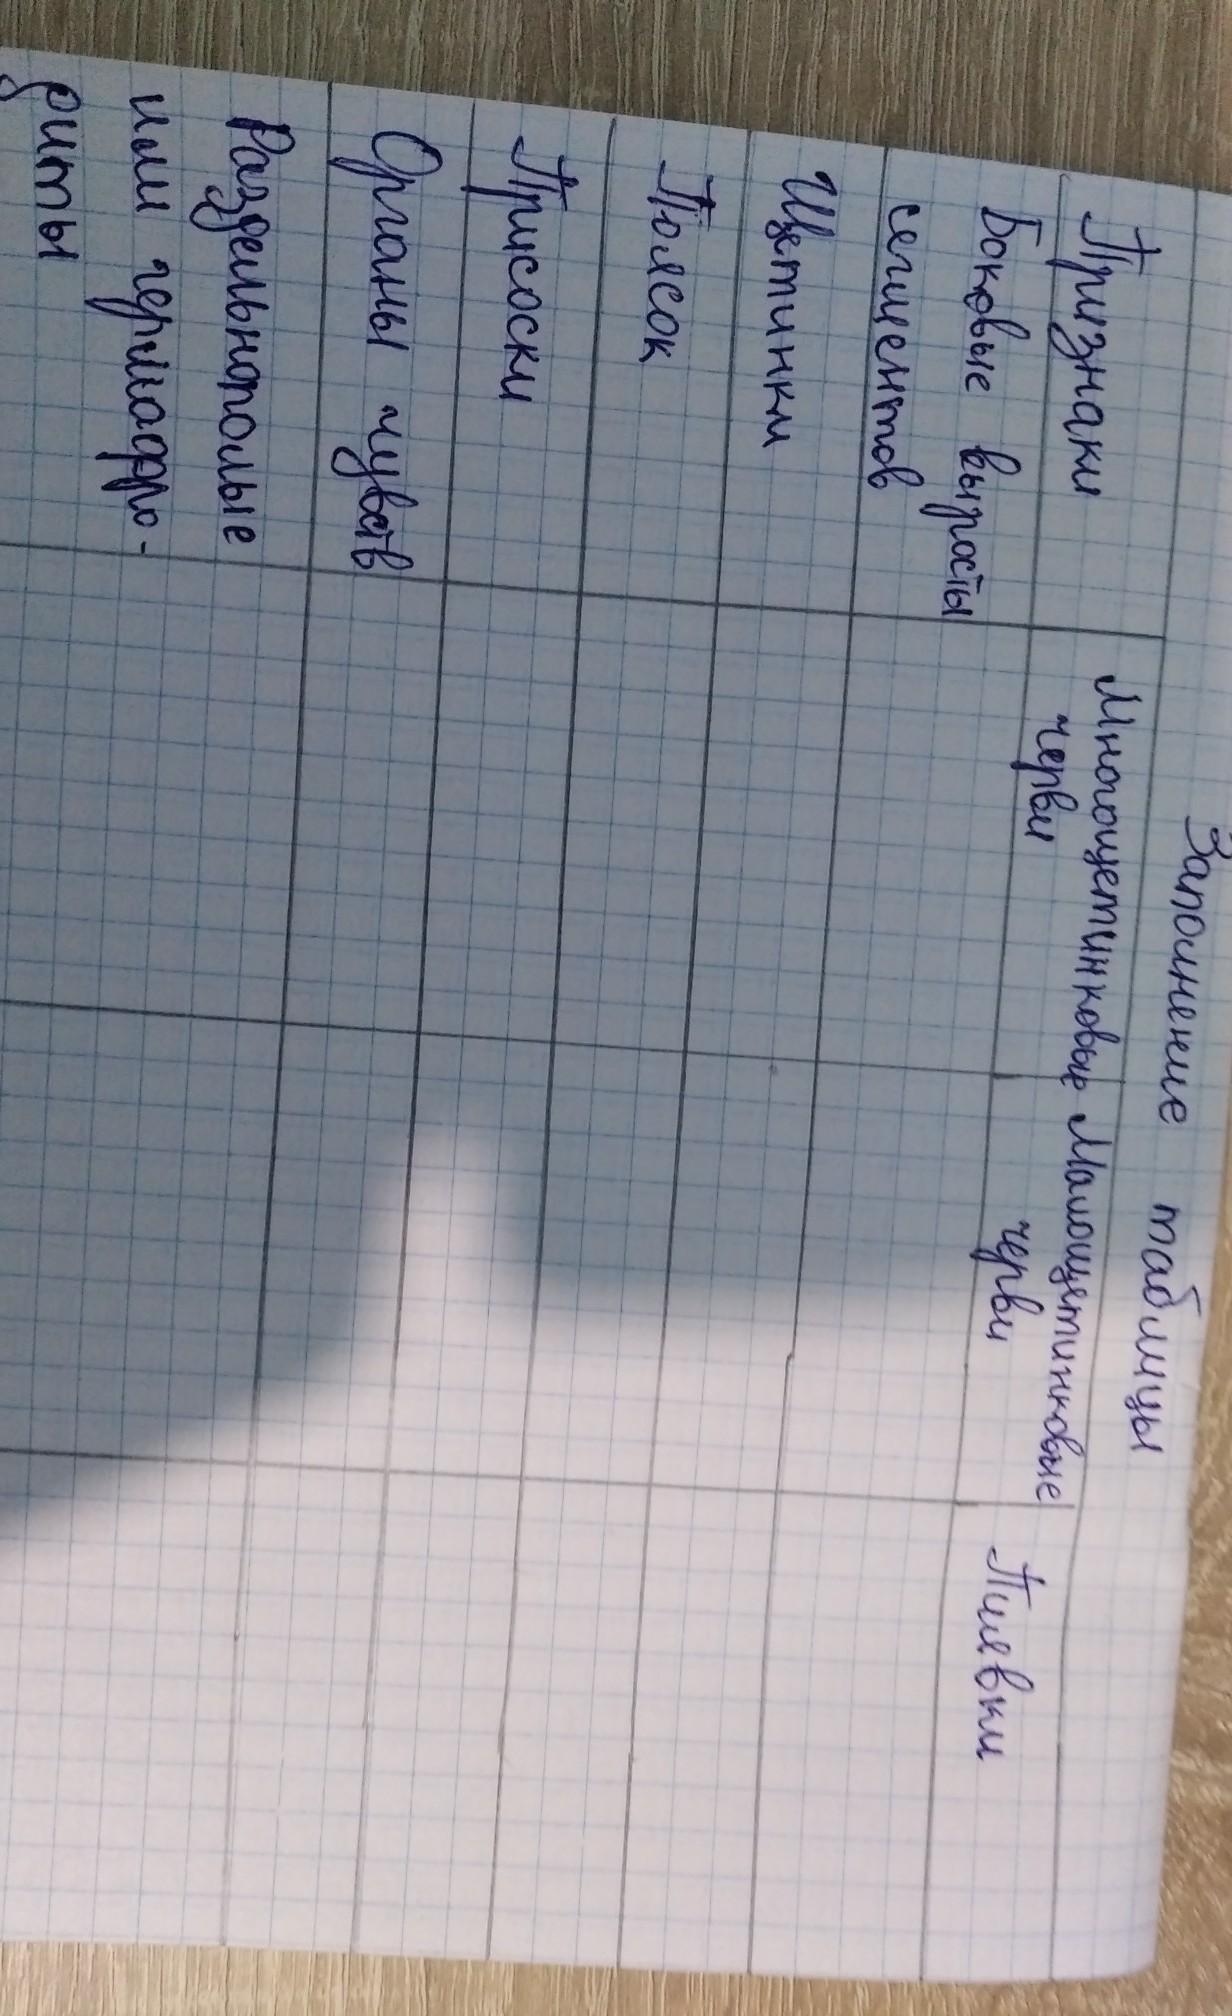 Заполнение таблицы
Признаки
Многощетинковые
черви
Малощетинковые
черви
Пиявки
Боковые выросты
сегментов
Щетинки
Поясок
Присоски
Органы чувств
Раздельнополые
или гермафро-
диты